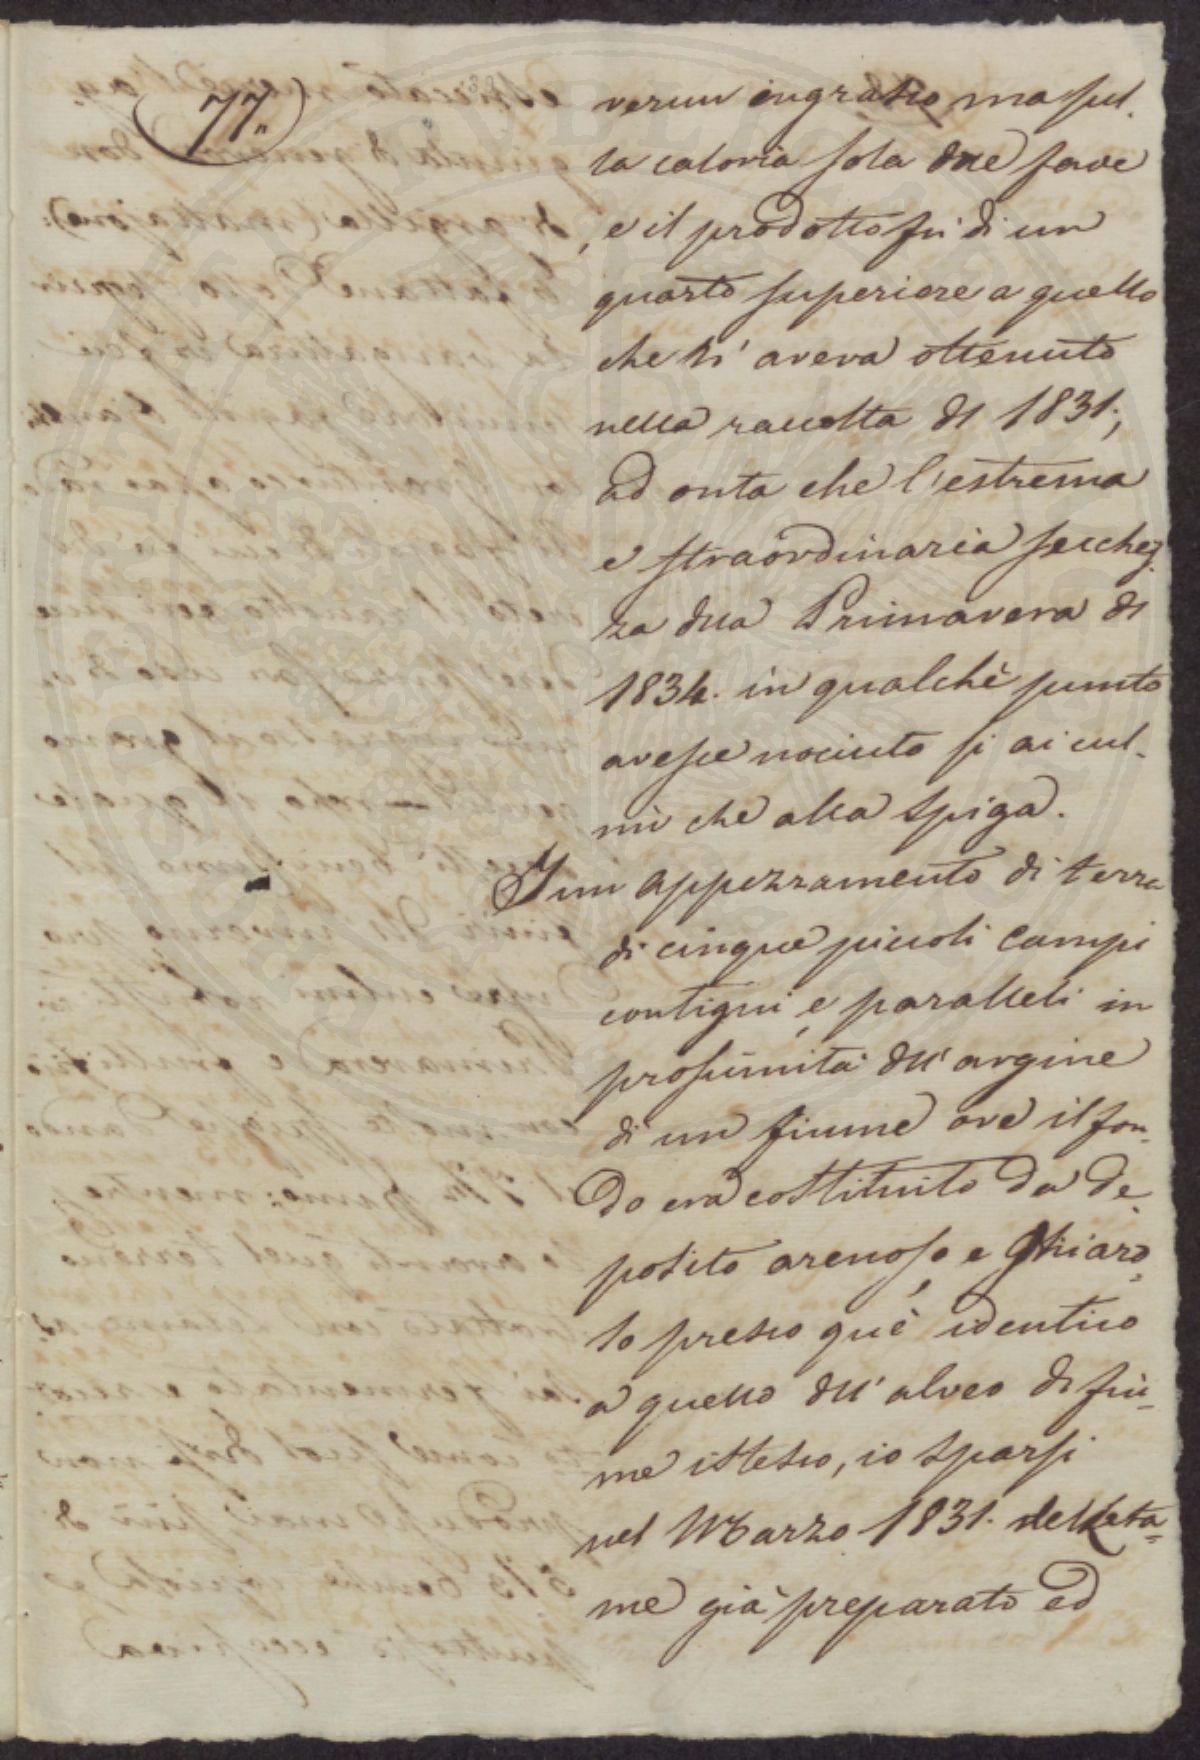 77.
verun ingrasso, ma sul-
la caloria sola due fave
, e il prodotto fu di un
quarto superiore a quello
che s'aveva ottenuto
nella raccolta del 1831;
ad onta che l'estrema
e straordinaria secchez-
za della Primavera del
1834. in qualchè punto
avesse nociuto sì ai cul-
mi che alla spiga.
In un appezzamento di terra
di cinque piccoli campi
contigui, e paralleli in
prossimità dell'argine
di un fiume ove il fon-
do era costituito da de-
posito arenoso, e ghiaro-
so presso què identico
a quello dell'alveo di fiu-
me istesso, io sparsi
nel Marzo 1831. del leta-
me già preparato ed